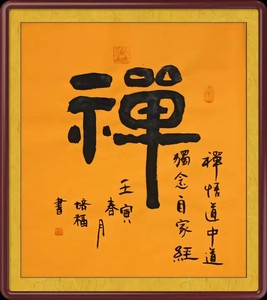 禪
禪悟道中道
獨念自家經
壬寅
春月
培福
書